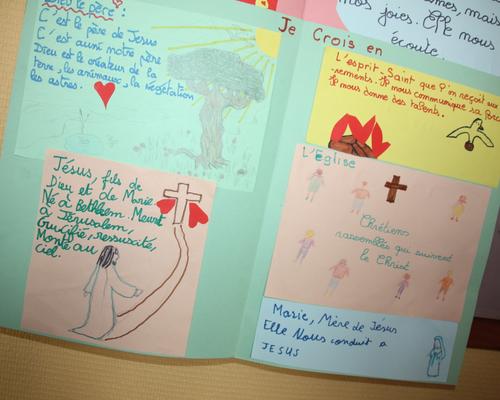 Dieu le père :
C'est le père de Jésus
C'est aussi notre père
Dieu est le créateur de la
terre, les animaux, la végétation
les astres.
Jésus, fils de
Dieu et de Marie.
Né à Bethléem. Meurt
à Jérusalem,
crucifié, ressuscité,
Monte au
ciel.
mes, mais
nos joies. Elle nous
écoute.
Je Crois en
L'esprit Saint que l'on reçoit au
rements. Il nous communique sa force
Il nous donne des talents.
L'Église
Chrétiens
rassemblés qui suivent
le Christ
Marie, Mère de Jésus
Elle Nous conduit à
JESUS